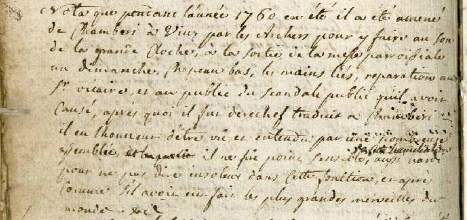 Nota que pendant l'année 1760 en été il a été amené
de Chamberi à Viuz par les Archers pour y faire au son
de la grande Cloche, à la sortie de la messe paroissiale
un dimanche, chapeau bas, les mains liés, reparation au
Sr vicaire, et au publie du scandale public qu'il avoit
causé, après quoi il fut derechef traduit à Chamberi
il eu l'honneur d'être vû et entendu par une
assemblée, il ne fut point sensible, aussi
pour ne pas dire insolent dans cette fonction, et après
comme s'il avoit fait les plus grandes merveilles du
monde